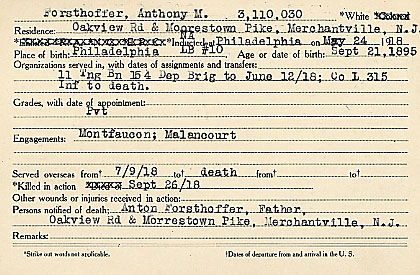 Forsthoffer, Anthony M. 3,110,030 *White *Colored
Residence: Oakview Rd & Morrestown Pike, Merchantville, N.J.
NA
*Inducted at Philadelphia on May 24 1918
Place of birth: Philadelphia LB #10 Age or date of birth: Sept 21,1895
Organizations served in, with dates of assignments and transfers:
11 Tng Bn 154 Dep Brig to June 12/18; Co L 315
Inf to death.
Grades, with date of appointment:
Pvt
Engagements: Montfaucon; Malancourt
Served overseas from† 7/9/18 to† death from† to†
*Killed in action Sept 26/18
Other wounds or injuries received in action:
Persons notified of death: Anton Forsthoffer, Father,
Oakview Rd & Morrestown Pike, Merchantville, N.J.
Remarks:
*Strike out words not applicable. †Dates of departure from and arrival in the U. S.